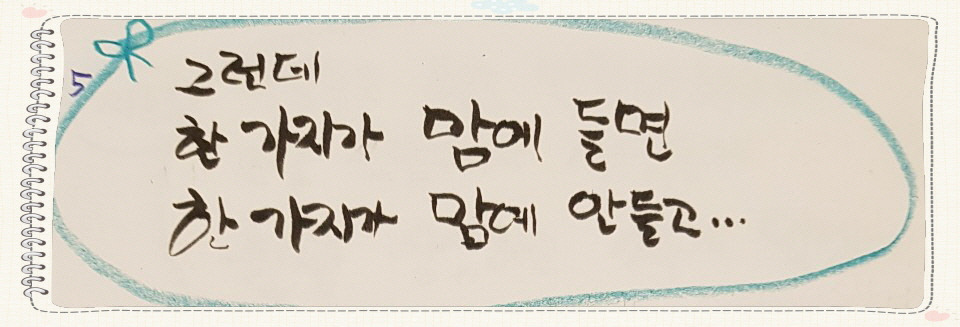 5
그런데
한 가지가 맘에 들면
한 가지가 맘에 안들고...